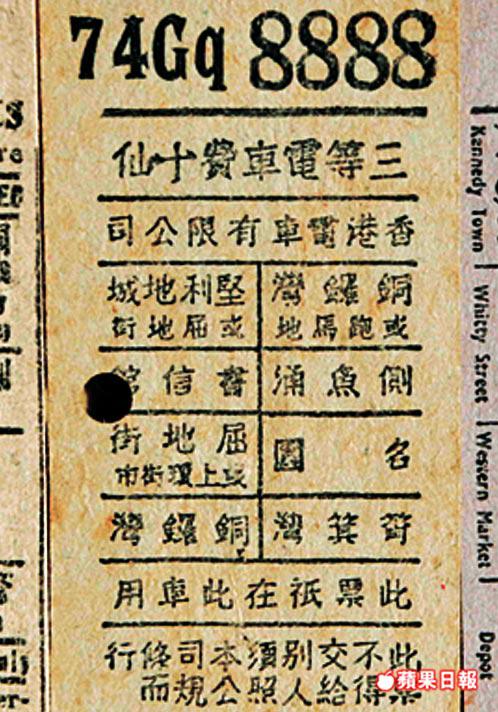 74Gq 8888
三等電車費十仙
香港電車有限公司
銅鑼灣
或跑馬地
堅利地城
或屈地街
側魚涌
書信館
名園
屈地街
或上環街市
筲箕灣
銅鑼灣
此票祇在此車用
此票不得交給別人須照本公司規條而行
Kennedy Town
Whitty Street
Western Market
Depot
蘋果日報